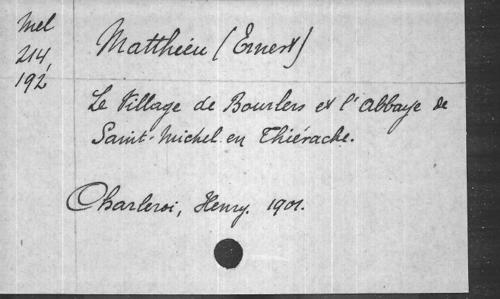 Mel
214,
192
Matthieu (Ernest)
Le Village de Bourlers et l'Abbaye de
Saint-Michel en Thiérache.
Charleroi, Henry. 1901.